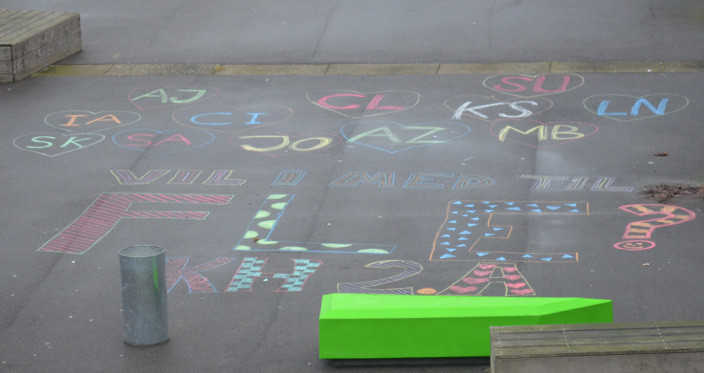 AJ CL SU
IA CI KS LN
SK SA JO AZ MB
VIL I MED TIL
FLE?
KH 2.A